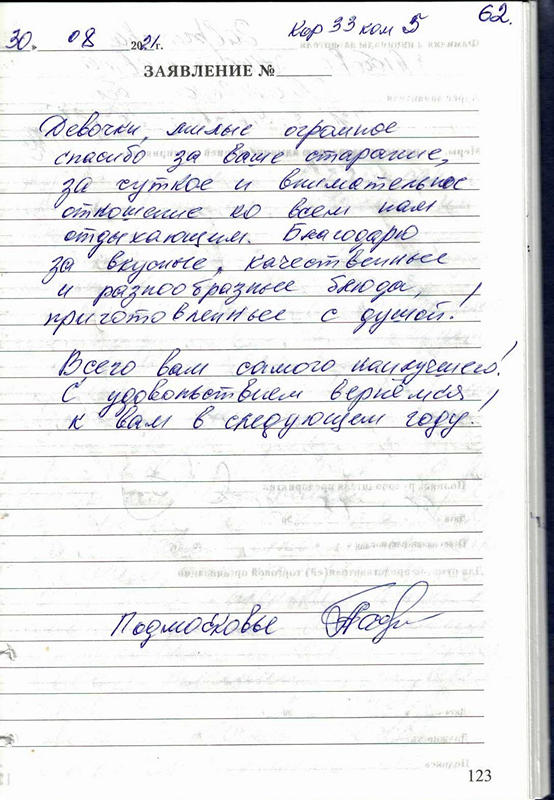 62.
Кор 33 ком 5
30. 08 2021г.
ЗАЯВЛЕНИЕ №
Девочки, милые огромное
спасибо за ваше старание,
за чуткое и внимательное
отношение ко всем нам
отдыхающим. Благодарю
за вкусные, качественные
и разнообразные блюда,
приготовленные с душой!
Всего вам самого наилучшего!
С удовольствием вернёмся
к вам в следующем году!
Подмосковье
123